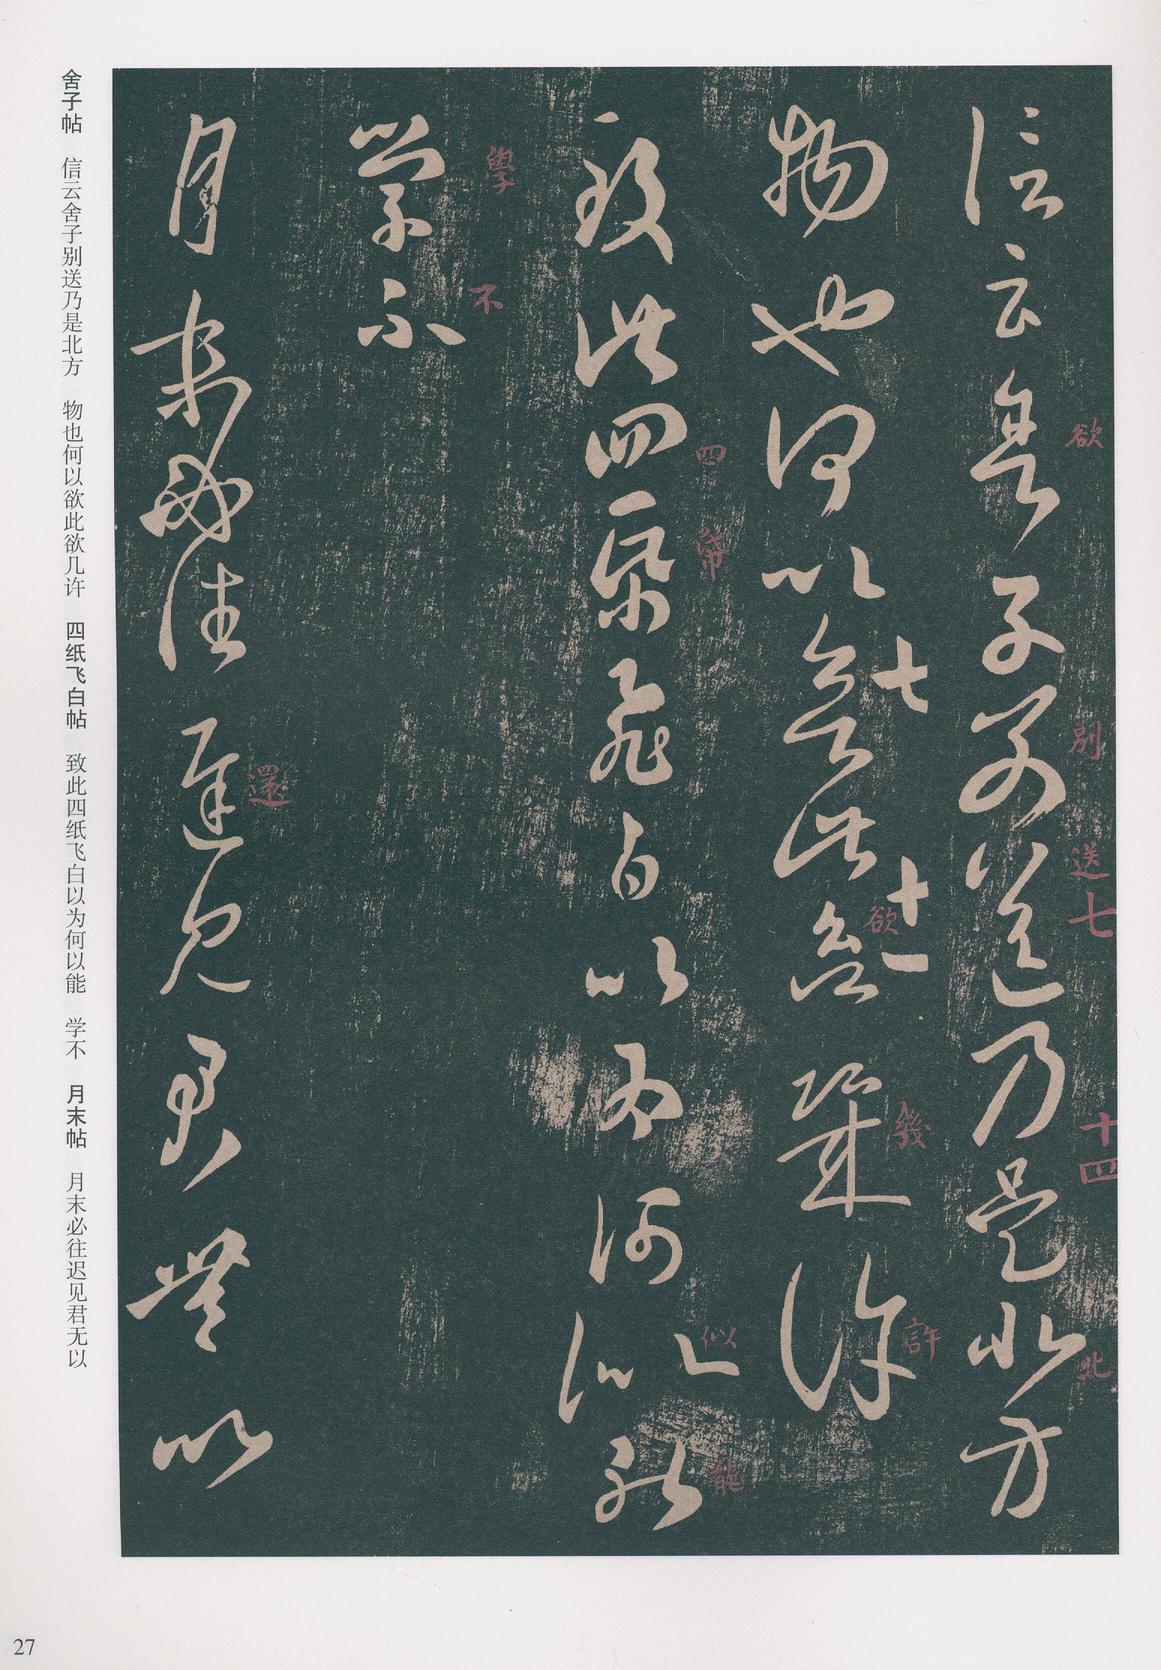 信云舍子别送乃是北方
物也何以欲此欲幾许
致此四帋飛白以为何似能
学不
月末必往遲見君無以
欲
别
送
七
十四
北
七
十一
欲
幾
許
四
帋
似
能
學
不
還
舍子帖 信云舍子别送乃是北方 物也何以欲此欲几许 四纸飞白帖 致此四纸飞白以为何以能 学不 月末帖 月末必往迟见君无以
27